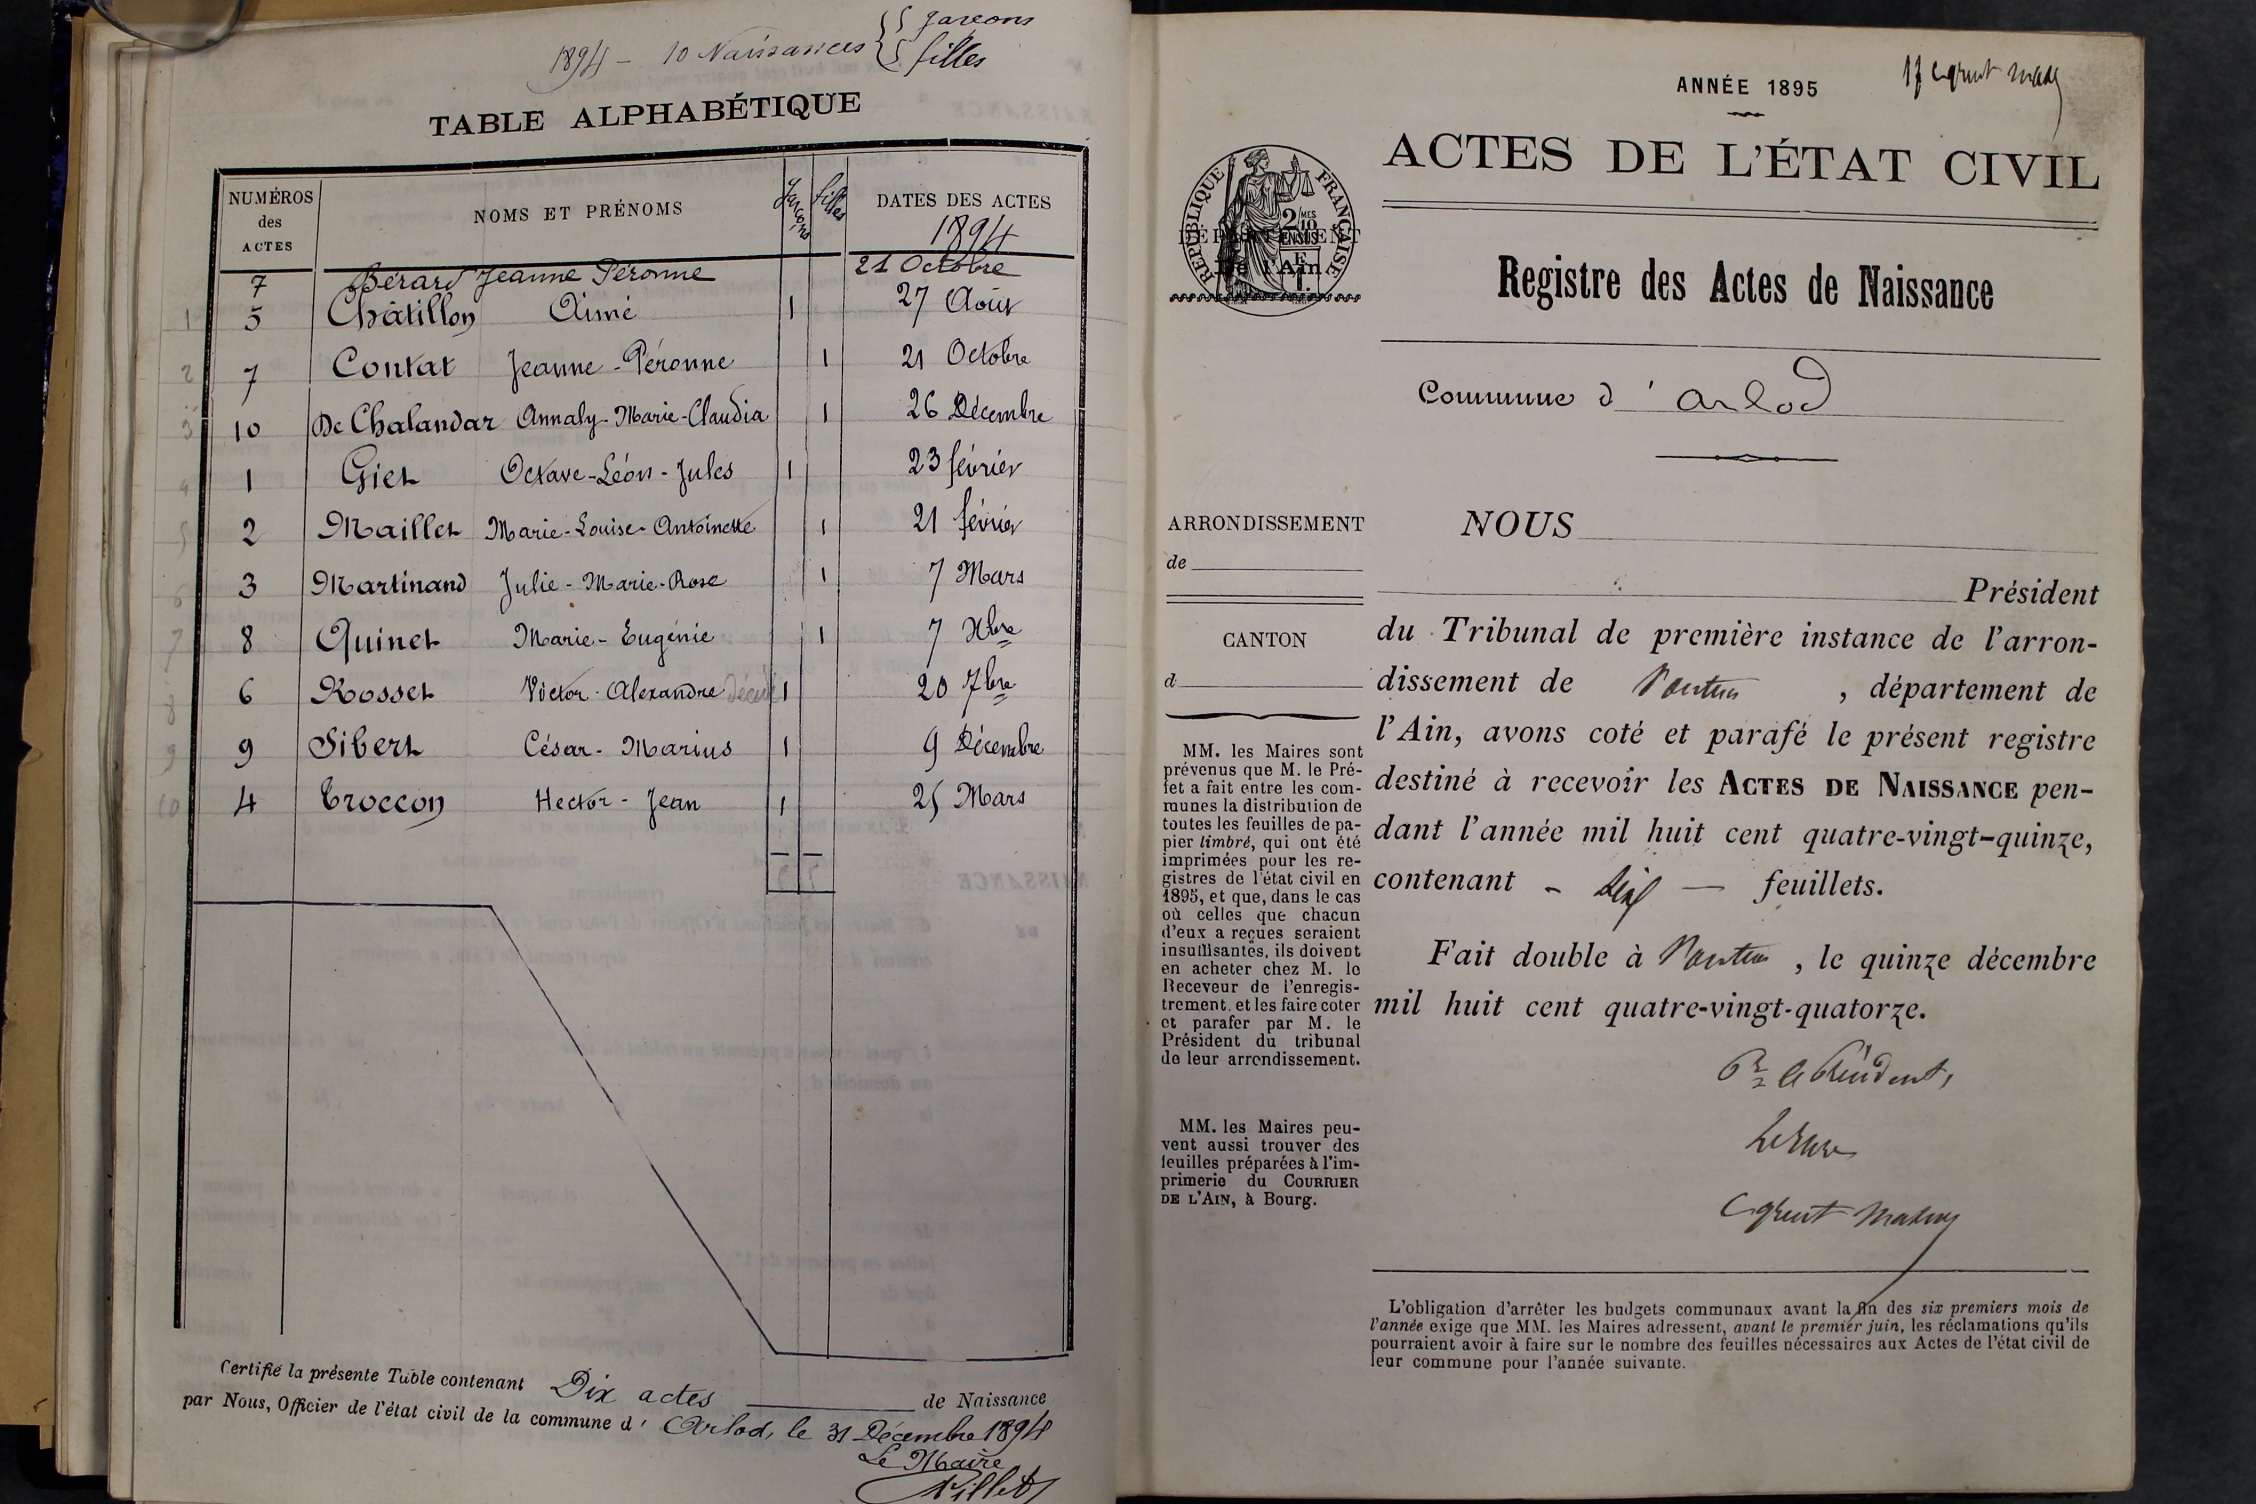 1894 - 10 Naissances { 5 garcons
5 filles
TABLE ALPHABÉTIQUE
NUMÉROS des ACTES NOMS ET PRÉNOMS Garçons filles DATES DES ACTES 1894
7 Bérard Jeanne Péronne 21 Octobre
1 5 Châtillon Aimé 1 27 Août
2 7 Contat Jeanne-Péronne 1 21 Octobre
3 10 De Chalandar Annaly-Marie-Claudia 1 26 Décembre
4 1 Giet Octave-Léon-Jules 1 23 février
5 2 Maillet Marie-Louise-Antoinette 1 21 février
6 3 Martinand Julie-Marie-Rose 1 7 Mars
7 8 Quinet Marie-Eugénie 1 7 Xbre
8 6 Rosset Victor-Alexandre décédé 1 20 7bre
9 9 Sibert César-Marius 1 9 Décembre
10 4 Troccon Hector-Jean 1 25 Mars
5 5
Certifié la présente Table contenant Dix actes de Naissance
par Nous, Officier de l'état civil de la commune d' Arlod, le 31 Décembre 1894
Le Maire
Millet
ANNÉE 1895
ACTES DE L'ÉTAT CIVIL
RÉPUBLIQUE FRANÇAISE
2/10 MES EN SUS
E 1.
DÉPARTEMENT
De l'Ain
Registre des Actes de Naissance
Commune d' Arlod
ARRONDISSEMENT
de
CANTON
d
MM. les Maires sont
prévenus que M. le Pré-
fet a fait entre les com-
munes la distribution de
toutes les feuilles de pa-
pier timbré, qui ont été
imprimées pour les re-
gistres de l'état civil en
1895, et que, dans le cas
où celles que chacun
d'eux a reçues seraient
insuffisantes, ils doivent
en acheter chez M. le
Receveur de l'enregis-
trement, et les faire coter
et parafer par M. le
Président du tribunal
de leur arrondissement.
MM. les Maires peu-
vent aussi trouver des
feuilles préparées à l'im-
primerie du COURRIER
DE L'AIN, à Bourg.
NOUS
Président
du Tribunal de première instance de l'arron-
dissement de Nantua , département de
l'Ain, avons coté et parafé le présent registre
destiné à recevoir les ACTES DE NAISSANCE pen-
dant l'année mil huit cent quatre-vingt-quinze,
contenant - six — feuillets.
Fait double à Nantua , le quinze décembre
mil huit cent quatre-vingt-quatorze.
Pr le Président,
L'obligation d'arrêter les budgets communaux avant la fin des six premiers mois de
l'année exige que MM. les Maires adressent, avant le premier juin, les réclamations qu'ils
pourraient avoir à faire sur le nombre des feuilles nécessaires aux Actes de l'état civil de
leur commune pour l'année suivante.